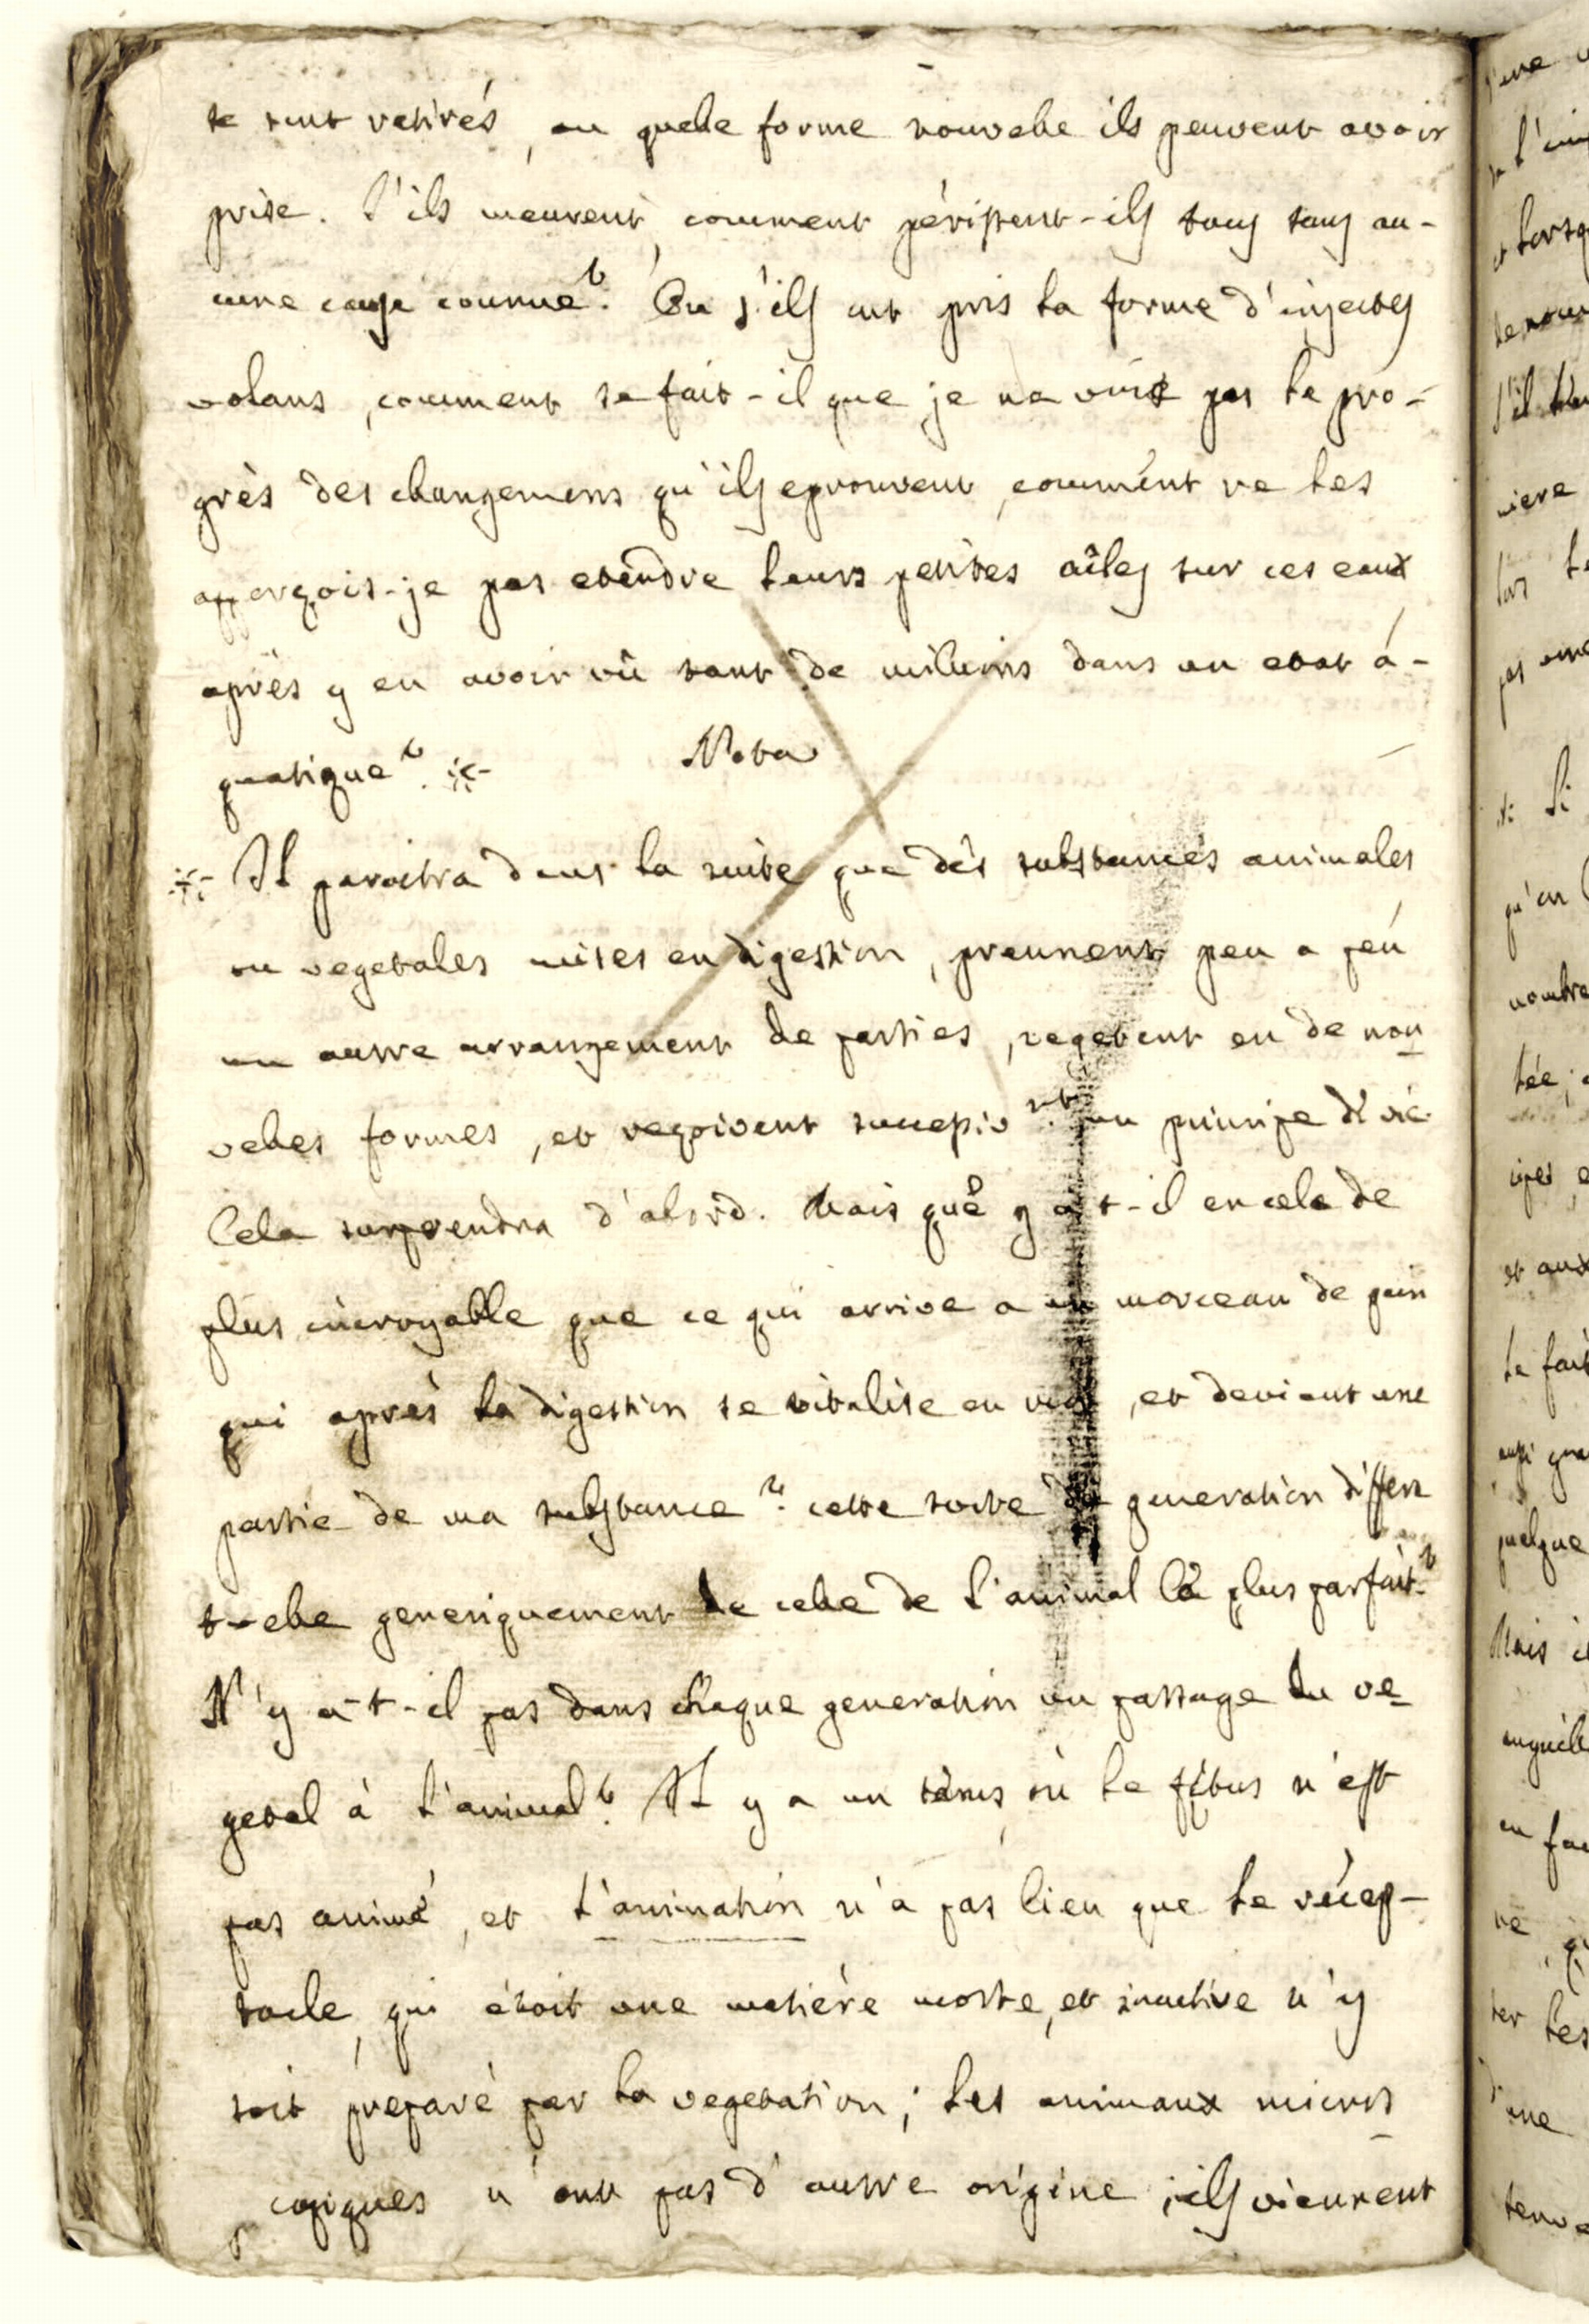 se sont retirés, ou quelle forme nouvelle ils peuvent avoir
prise. S'ils meurent, comment périssent-ils tous sans au-
cune cause connue? Ou s'ils ont pris la forme d'insectes
volans, comment se fait-il que je ne vois pas le pro-
grès des changemens qu'ils eprouvent, comment ne les
apperçois-je pas etendre leurs petites aîles sur ces eaux
après y en avoir vû tant de milions dans un etat a-
quatique?
Nota
Il paroitra dans la suite que des substances animales
ou vegetales mises en digestion, prennent peu a peu
un autre arrangement de parties, vegetent en de nou
velles formes, et reçoivent un principe de vie
Cela surprendra d'abord. Mais que y a-t-il en cela de
plus incroyable que ce qui arrive a un morceau de pain
qui après la digestion se vitalise en moi, et devient une
partie de ma substance? cette sorte de generation differe
t-elle generiquement de celle de l'animal le plus parfait?
N'y a-t-il pas dans chaque generation un passage du ve
getal à l'animal? Il y a un tems, où le fétus n'est
pas animé, et l'animation n'a pas lieu que le récep-
tacle, qui étoit une matière morte, et inactive n'y
soit preparé par la vegetation; les animaux micros
copiques n'ont pas d'autre origine, ils viennent